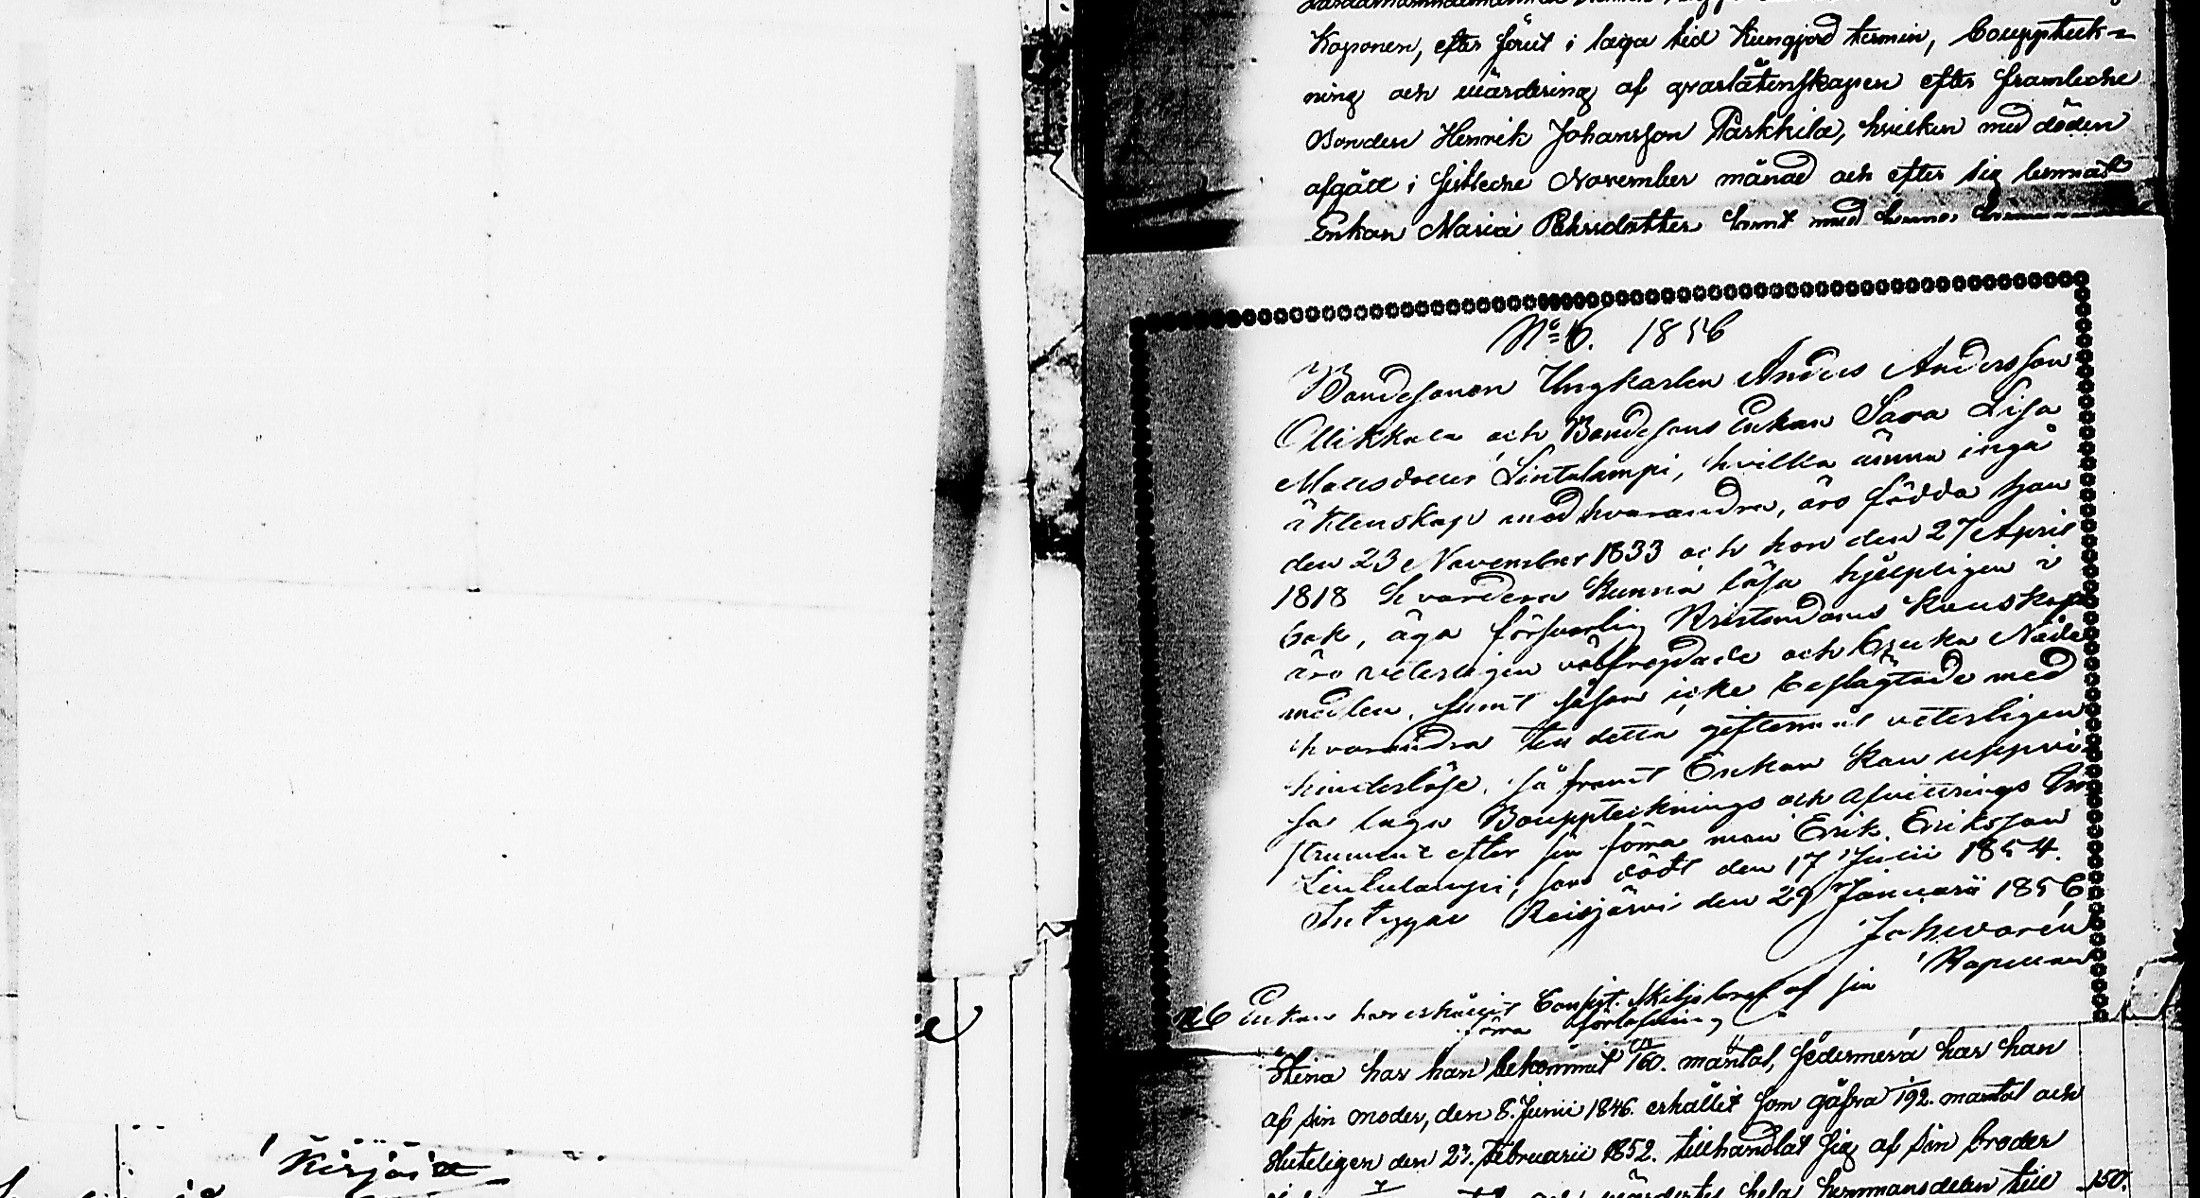 Koponen, efter förut i laga tid kungjord termin, Bouppteck-
ning och värdering af qvarlåtenskapen efter framledne
Bonden Henrik Johansson Parkkila, hvilken med döden
afgått i sistledne November månad och efter sig lemnat
Enkan Maria Pehrsdotter samt med henne
No 6. 1856
Bondesonen Ungkarlen Anders Andersson
Ollikkala och Bondesons Enkan Sara Lisa
Matsdotter Lintulampi, hvilka ämna ingå
äktenskap med hvarandra, äro födda han
den 23 November 1833 och hon den 27 April
1818 hvardera kunna läsa hjelpligen i
bok, äga försvarlig Kristendoms kunskap
äro veterligen välfrejdade och bruka Nåde
medlen, samt såsom icke beslägtade med
hvarandra till detta giftermål veterligen
hinderlöse, så framt Enkan kan uppvi
sa laga Bouppteknings och Afvittrings In
strument efter sin förra man Erik Eriksson
Lintulampi, som dödt den 17 Julii 1854.
Intygar Reisjärvi den 29 Januarii 1856
Kapellan
Enkan har erhållit Consist. Skiljobref af sin
förra förlofning
Stina har han bekommit /60. mantal, hädermera har han
af sin moder, den 8. Junii 1846. erhållit som gåfva 1/92. mantal och
slutligen den 27. Februarii 1852. tillhandlat sig af sin broder
värdertes hela hemmansdelen till 150.
Kirjoja